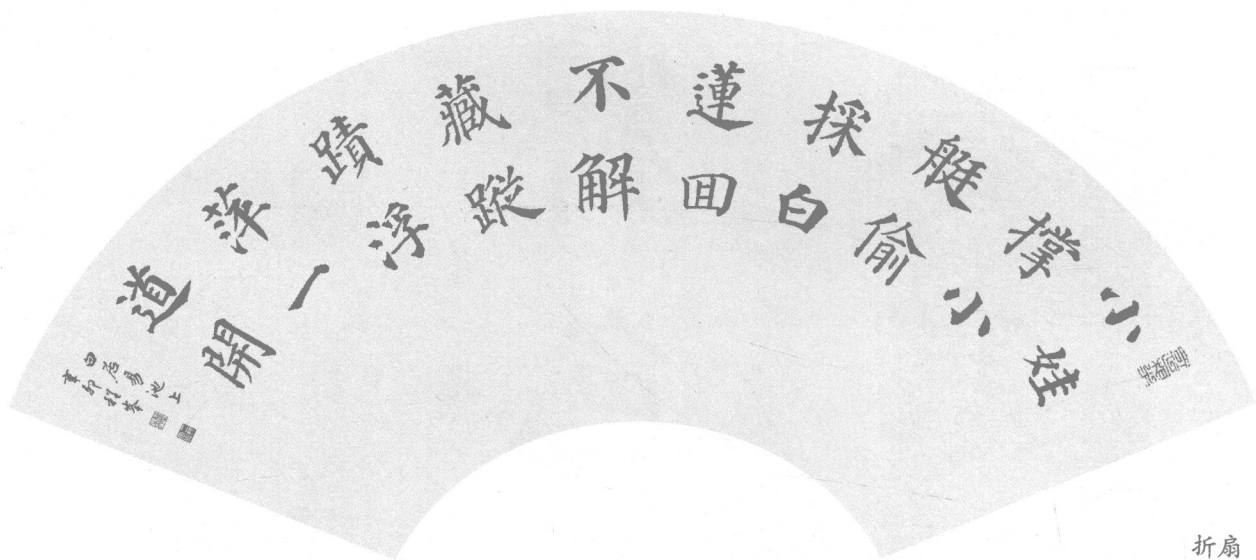 小娃
撑小
艇偷
採白
蓮囬
不解
藏蹤
蹟浮
萍一
道開
白居易池上
辛卯
折扇